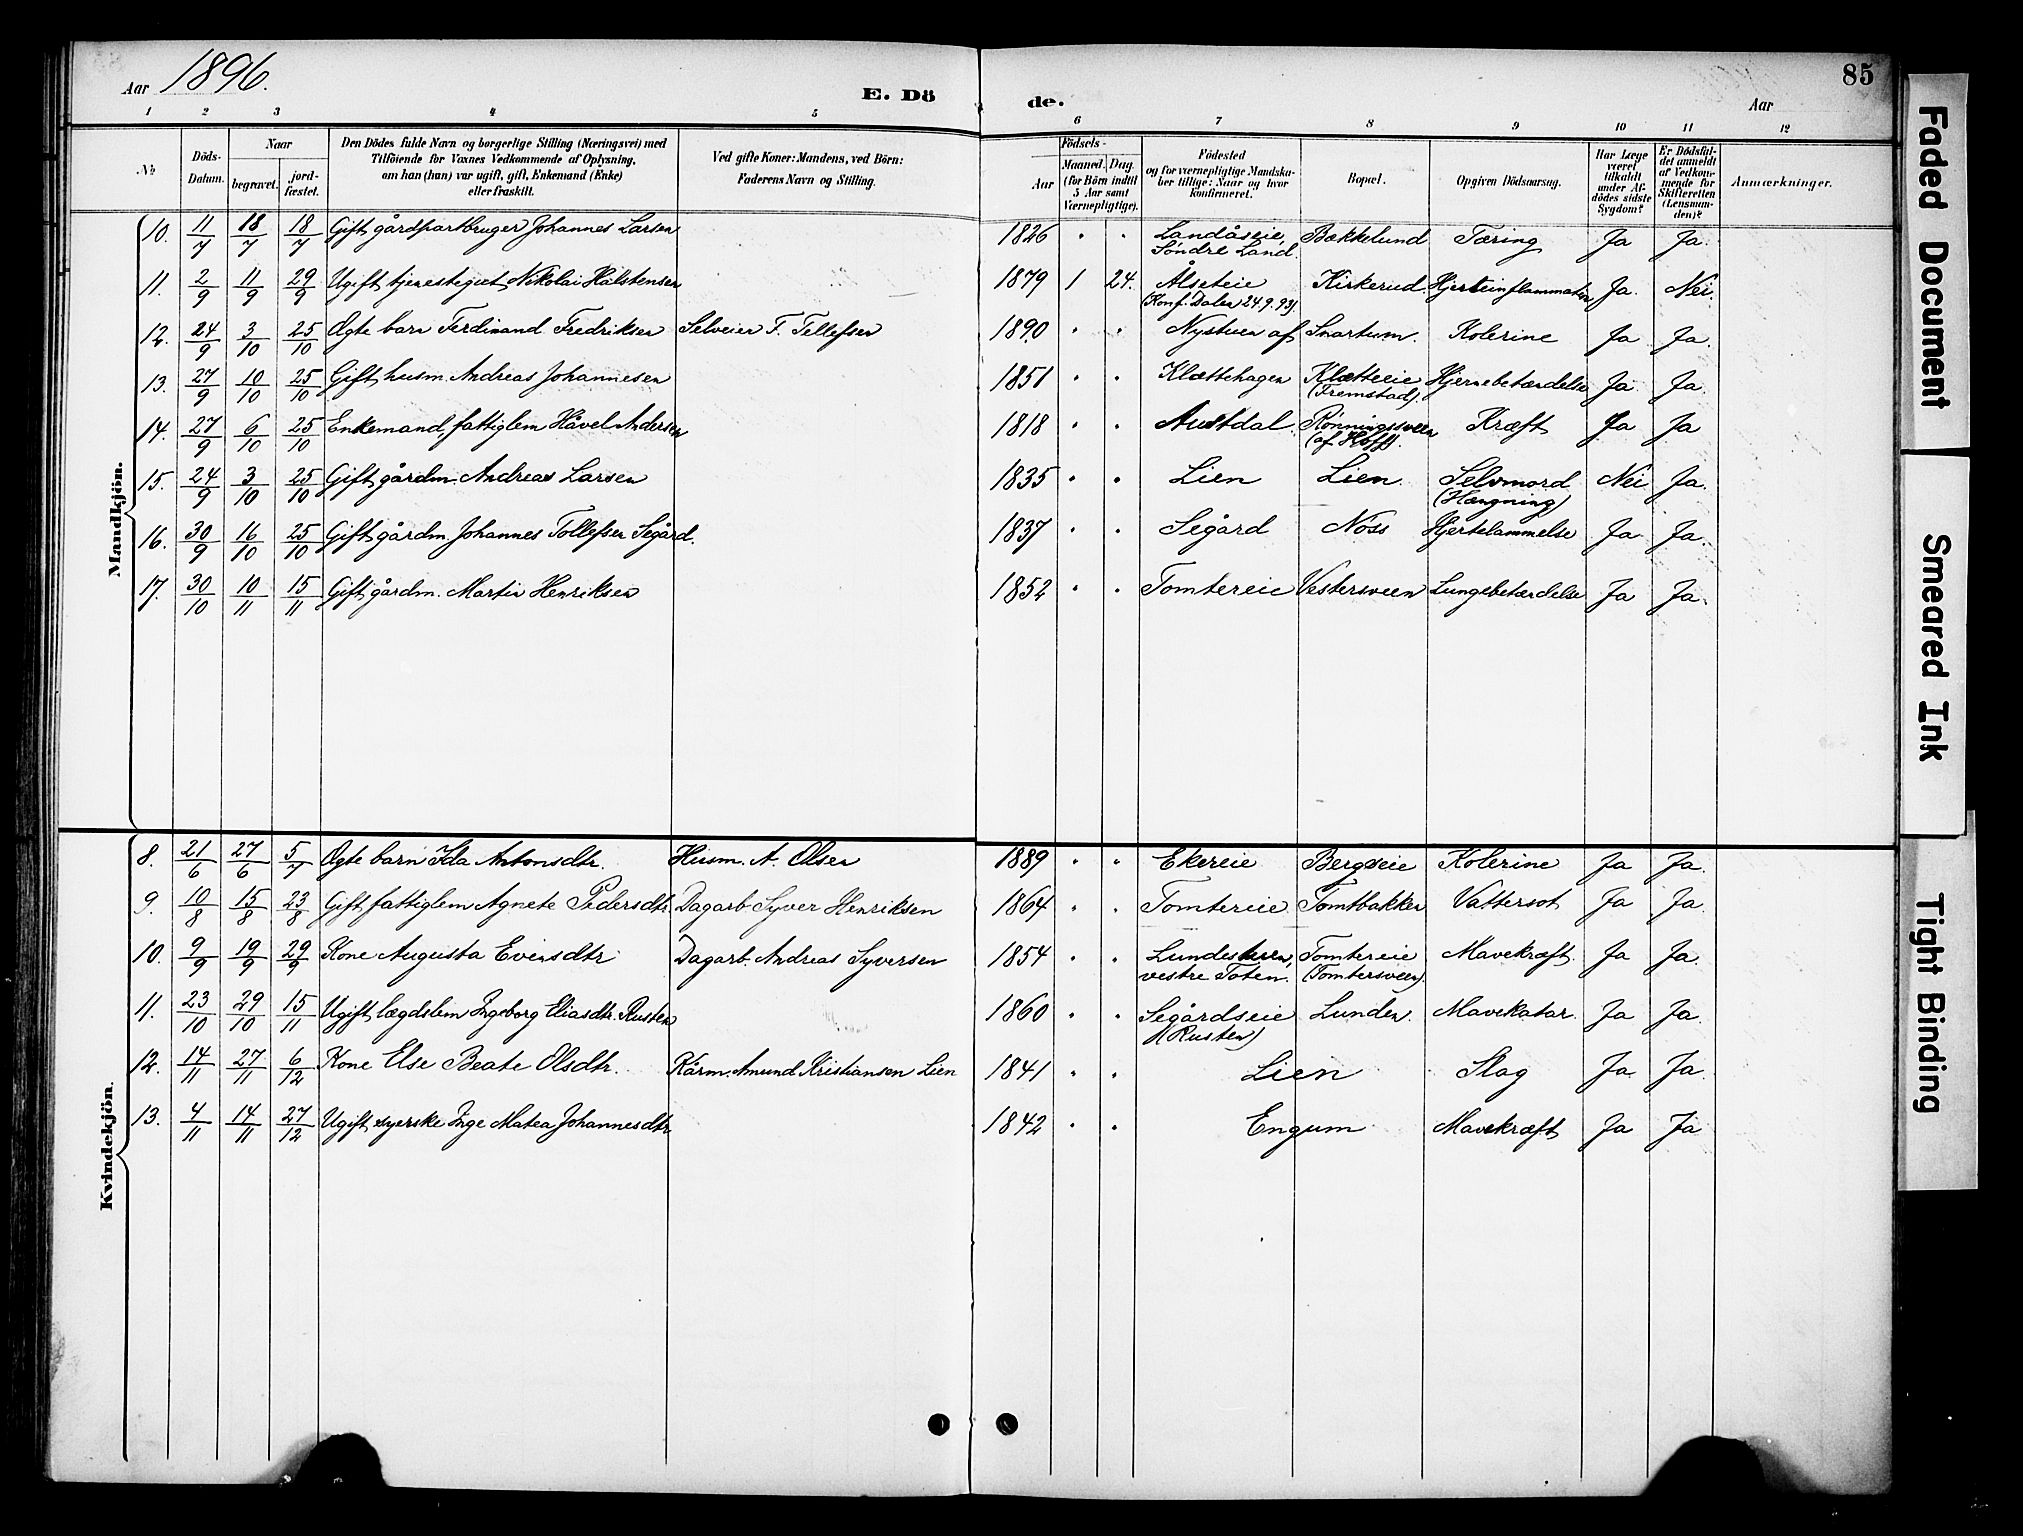 Aar 1896. E. Dö de. Aar 85
1 2 3 4 5 6 7 8 9 10 11 12
№ Döds-Datum. Naar begravet. jord-fæstet. Den Dödes fulde Navn og borgerlige Stilling (Næringsvei) med Tilföiende for Voxnes Vedkommende af Oplysning, om han (hun) var ugift, gift, Enkemand (Enke) eller fraskilt. Ved gifte Koner: Mandens, ved Börn: Faderens Navn og Stilling. Födsels- Aar Maaned. Dag. (for Börn indtil 5 Aar samt Værnepligtige). Födested og for værnepligtige Mandskaber tillige: Naar og hvor konfirmeret. Bopæl. Opgiven Dödsaarsag. Har Læge været tilkaldt under Afdödes sidste Sygdom? Er Dödsfaldet anmeldt af Vedkommende for Skifteretten (Lensmanden)? Anmærkninger.
Mandkjön.
10. 11/7 18/7 18/7 Gift gårdpartbruger Johannes Larsen 1826 " " Landåseie, Søndre Land. Bækkelund Tæring Ja Ja.
11. 2/9 11/9 29/9 Ugift tjenestegut Nikolai Halstensen 1879 1 24. Ålseteie (Konf. Dalen 24.9.93) Kirkerud Hjerteinflammation Ja. Nei.
12. 24/9 3/10 25/10 Ægte barn Ferdinand Fredriksen Selveier F. Tellefsen 1890 " " Nystuen af Snartum. Kolerine Ja Ja.
13. 27/9 10/10 25/10 Gift husm. Andreas Johannesen 1851 " " Klættehagen Klætteeie (Fremstad). Hjernebetændelse Ja. Ja.
14. 27/9 6/10 25/10 Enkemand, fattiglem Håvel Andersen 1818 " " Austdal. Rønningssveen (af Hoff). Kræft Ja Ja
15. 24/9 3/10 25/10 Gift gårdm. Andreas Larsen 1835 " " Lien Lien. Selvmord (Hængning) Nei Ja.
16. 30/9 16/10 25/10 Gift gårdm. Johannes Tollefsen Segård. 1837 " " Segård Nøss Hjertelammelse Ja Ja.
17. 30/10 10/11 15/11 Gift gårdm. Martin Henriksen 1852 " " Tomtereie Vestersveen Lungebetændelse Ja Ja.
Kvindekjön.
8. 21/6 27/6 5/7 Ægte barn Ida Antonsdtr. Husm. A. Olsen 1889 " " Ekereie Bergseie Kolerine Ja Ja.
9. 10/8 15/8 23/8 Gift fattiglem Agnete Pedersdtr. Dagarb. Syver Henriksen 1864 " " Tomtereie Tomtbakken Vattersot Ja Ja.
10. 9/9 19/9 29/9 Kone Augusta Evensdtr Dagarb. Andreas Syversen 1854 " " vestre Toten. Tomtereie (Tomtersveen). Mavekræft. Ja Ja.
11. 23/10 29/10 15/11 Ugift lægdslem Ingeborg Eliasdtr. Rusten 1860 " " Segårdseie (Rusten) Lunden. Mavekatar. Ja Ja.
12. 14/11 27/11 6/12 Kone Else Beate Olsdtr. Kårm. Amund Kristiansen Lien 1841 " " Lien Slag Ja Ja.
13. 4/11 14/11 27/12 Ugift syerske Inge Matea Johannesdtr. 1842 " " Engum Mavekræft Ja Ja
Faded Document
Smeared Ink
Tight Binding